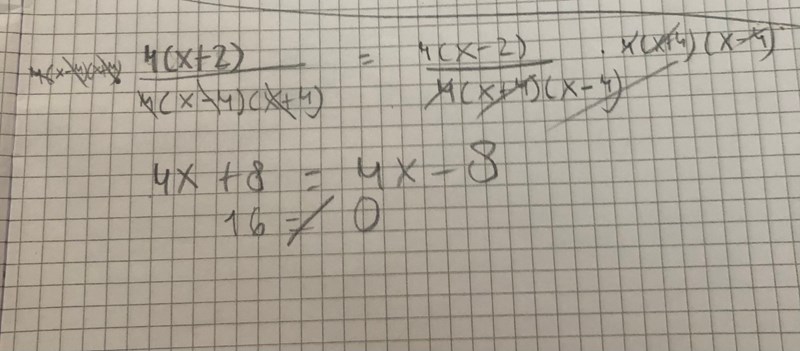 4(x-4)(x+4) 4(x+2)/4(x-4)(x+4) = 4(x-2)/4(x+4)(x-4) · 4(x+4)(x-4)
4x + 8 = 4x - 8
16 ≠ 0